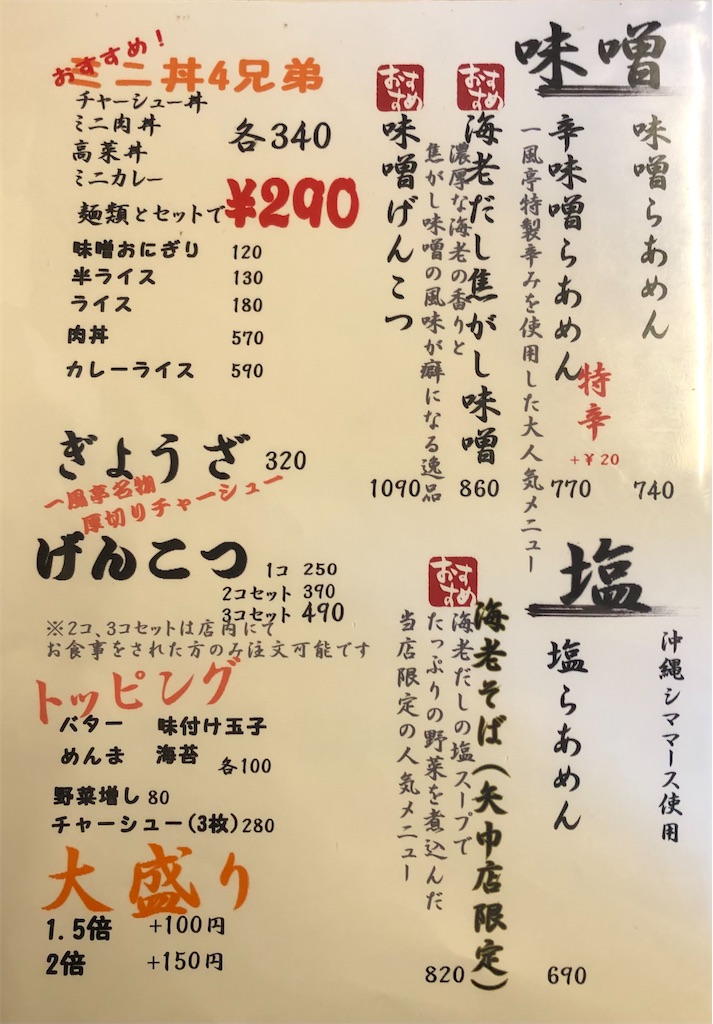 味噌
味噌らあめん
740
辛味噌らあめん
特辛
+￥20
770
一風亭特製辛みを使用した大人気メニュー
おすすめ
海老だし焦がし味噌
860
濃厚な海老の香りと
焦がし味噌の風味が癖になる逸品
おすすめ
味噌げんこつ
1090
塩
沖縄シママース使用
塩らあめん
690
おすすめ
海老そば(矢巾店限定)
820
海老だしの塩スープで
たっぷりの野菜を煮込んだ
当店限定の人気メニュー
おすすめ!
ミニ丼4兄弟
チャーシュー丼
ミニ肉丼
高菜丼
ミニカレー
各340
麺類とセットで¥290
味噌おにぎり 120
半ライス 130
ライス 180
肉丼 570
カレーライス 590
ぎょうざ 320
一風亭名物
厚切りチャーシュー
げんこつ 1コ 250
2コセット 390
3コセット 490
※2コ、3コセットは店内にて
お食事をされた方のみ注文可能です
トッピング
バター 味付け玉子
めんま 海苔 各100
野菜増し 80
チャーシュー(3枚) 280
大盛り
1.5倍 +100円
2倍 +150円